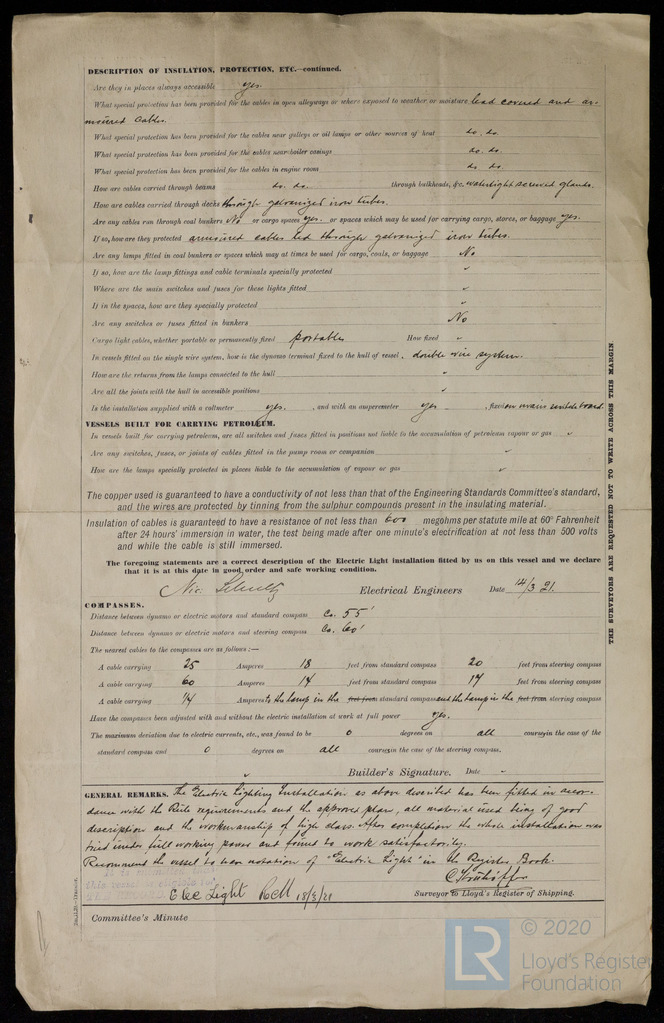 DESCRIPTION OF INSULATION, PROTECTION, ETC.—continued.
Are they in places always accessible yes.
What special protection has been provided for the cables in open alleyways or where exposed to weather or moisture lead covered and ar-
moured cables.
What special protection has been provided for the cables near galleys or oil lamps or other sources of heat do. do.
What special protection has been provided for the cables near boiler casings do. do.
What special protection has been provided for the cables in engine room do do.
How are cables carried through beams do. do. through bulkheads, &c. watertight screwed glands.
How are cables carried through decks through galvanized iron tubes.
Are any cables run through coal bunkers No or cargo spaces yes. or spaces which may be used for carrying cargo, stores, or baggage yes.
If so, how are they protected armoured cables led through galvanized iron tubes.
Are any lamps fitted in coal bunkers or spaces which may at times be used for cargo, coals, or baggage No
If so, how are the lamp fittings and cable terminals specially protected "
Where are the main switches and fuses for these lights fitted "
If in the spaces, how are they specially protected "
Are any switches or fuses fitted in bunkers No
Cargo light cables, whether portable or permanently fixed portables How fixed "
In vessels fitted on the single wire system, how is the dynamo terminal fixed to the hull of vessel . double wire system.
How are the returns from the lamps connected to the hull "
Are all the joints with the hull in accessible positions "
Is the installation supplied with a voltmeter yes. , and with an amperemeter yes , fixed on main switchboard.
VESSELS BUILT FOR CARRYING PETROLEUM.
In vessels built for carrying petroleum, are all switches and fuses fitted in positions not liable to the accumulation of petroleum vapour or gas "
Are any switches, fuses, or joints of cables fitted in the pump room or companion "
How are the lamps specially protected in places liable to the accumulation of vapour or gas "
The copper used is guaranteed to have a conductivity of not less than that of the Engineering Standards Committee's standard,
and the wires are protected by tinning from the sulphur compounds present in the insulating material.
Insulation of cables is guaranteed to have a resistance of not less than 600 megohms per statute mile at 60° Fahrenheit
after 24 hours' immersion in water, the test being made after one minute's electrification at not less than 500 volts
and while the cable is still immersed.
The foregoing statements are a correct description of the Electric Light installation fitted by us on this vessel and we declare
that it is at this date in good, order and safe working condition.
Electrical Engineers Date 14/3 21.
COMPASSES.
Distance between dynamo or electric motors and standard compass Ca. 55'
Distance between dynamo or electric motors and steering compass Ca. 60'
The nearest cables to the compasses are as follows:—
A cable carrying 25 Amperes 18 feet from standard compass 20 feet from steering compass
A cable carrying 60 Amperes 14 feet from standard compass 17 feet from steering compass
A cable carrying 1/4 Amperes to the lamp in the feet from standard compass and the lamp in the feet from steering compass
Have the compasses been adjusted with and without the electric installation at work at full power yes.
The maximum deviation due to electric currents, etc., was found to be 0 degrees on all course in the case of the
standard compass and 0 degrees on all course in the case of the steering compass.
" Builder's Signature. Date "
GENERAL REMARKS. The Electric Lighting Installation as above described has been fitted in accor-
dance with the Rule requirements and the approved plan, all material used being of good
description and the workmanship of high class. After completion the whole installation was
tried under full working power and found to work satisfactorily.
Recommend the vessel to have notation of "Electric Light" in the Register Book.
this vessel
Elec Light 18/3/21
Surveyor to Lloyd's Register of Shipping.
Committee's Minute
THE SURVEYORS ARE REQUESTED NOT TO WRITE ACROSS THIS MARGIN
LR
© 2020
Lloyd's Register
Foundation